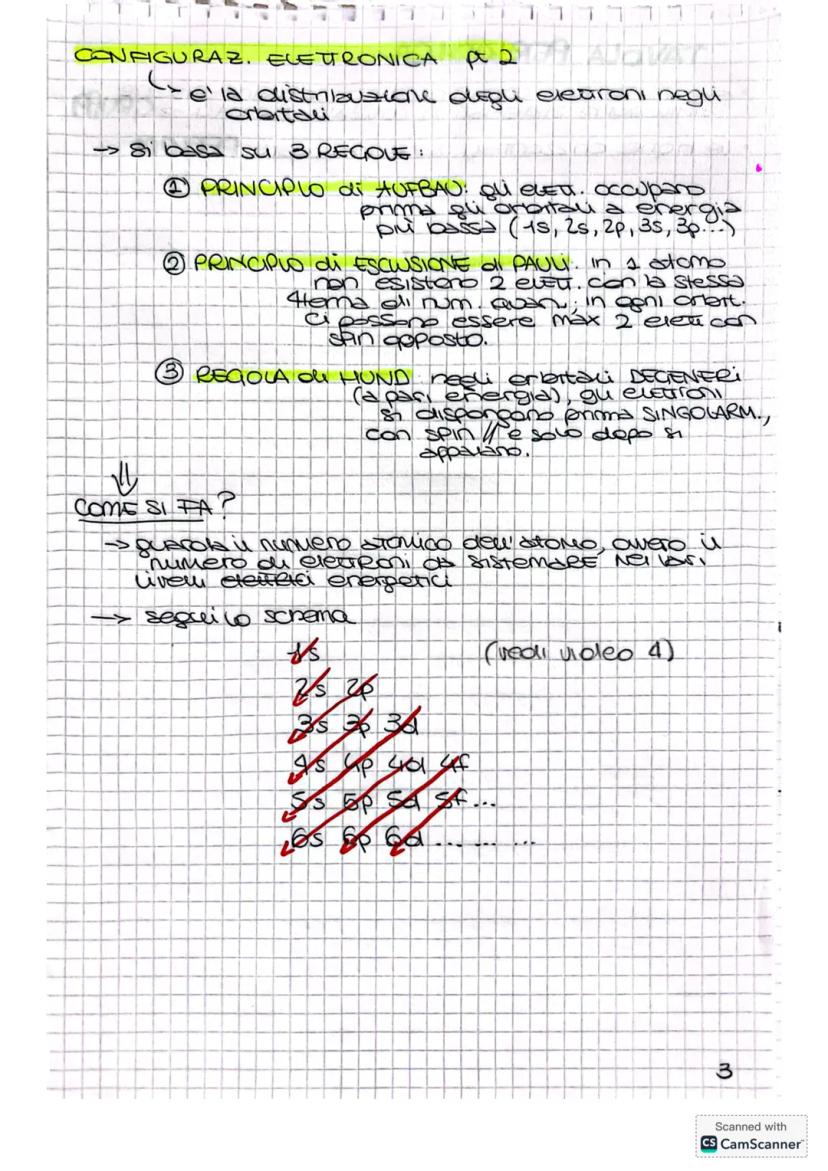 CONFIGURAZ. ELETTRONICA pt 2
↳ è la distribuzione degli elettroni negli
orbitali
→ si basa su 3 REGOLE:
① PRINCIPIO di AUFBAU: gli elett. occupano
prima gli orbitali a energia
più bassa (1s, 2s, 2p, 3s, 3p...)
② PRINCIPIO di ESCLUSIONE di PAULI: in 1 atomo
non esistono 2 elett. con la stessa
4terna di num. quan.; in ogni orbit.
ci possono essere max 2 elett con
spin opposto.
③ REGOLA di HUND: negli orbitali DEGENERI
(a pari energia), gli elettroni
si dispongono prima SINGOLARM.,
con spin // e solo dopo si
appaiano.
⇓
COME SI FA?
→ guarda il numero atomico dell'atomo, ovvero il
numero di elettroni da sistemare nei vari
livelli energetici
→ segui lo schema
1s (vedi video 4)
2s 2p
3s 3p 3d
4s 4p 4d 4f
5s 5p 5d 5f...
6s 6p 6d .... ... ...
3
Scanned with
CS CamScanner